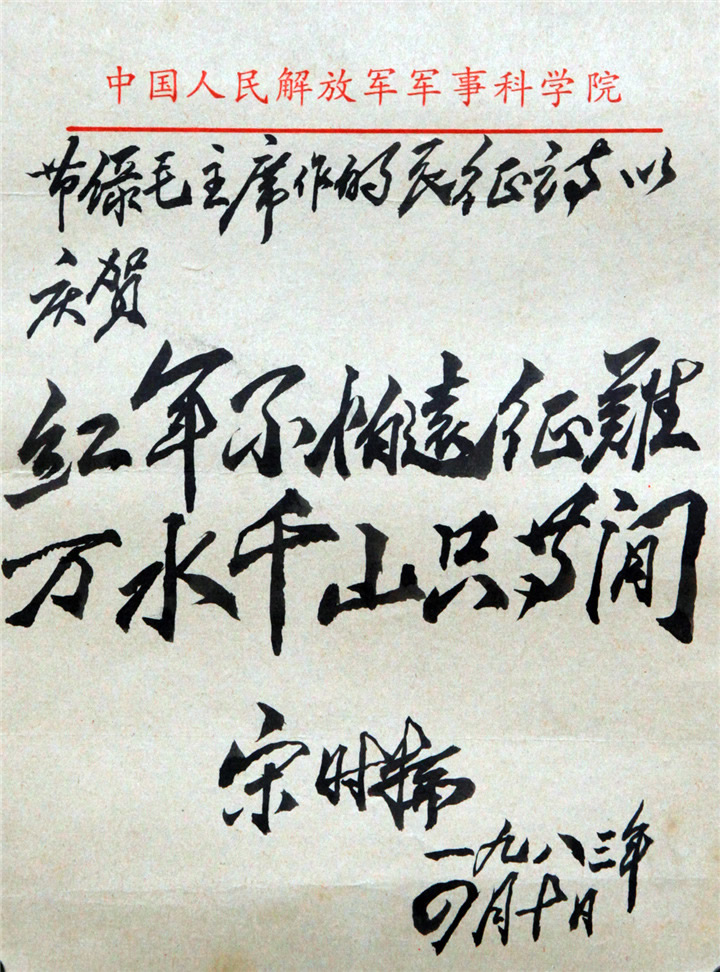 中国人民解放军军事科学院
节录毛主席作的长征诗以
庆贺
红军不怕遠征難
万水千山只等闲
宋时輪
一九八三年
四月十日